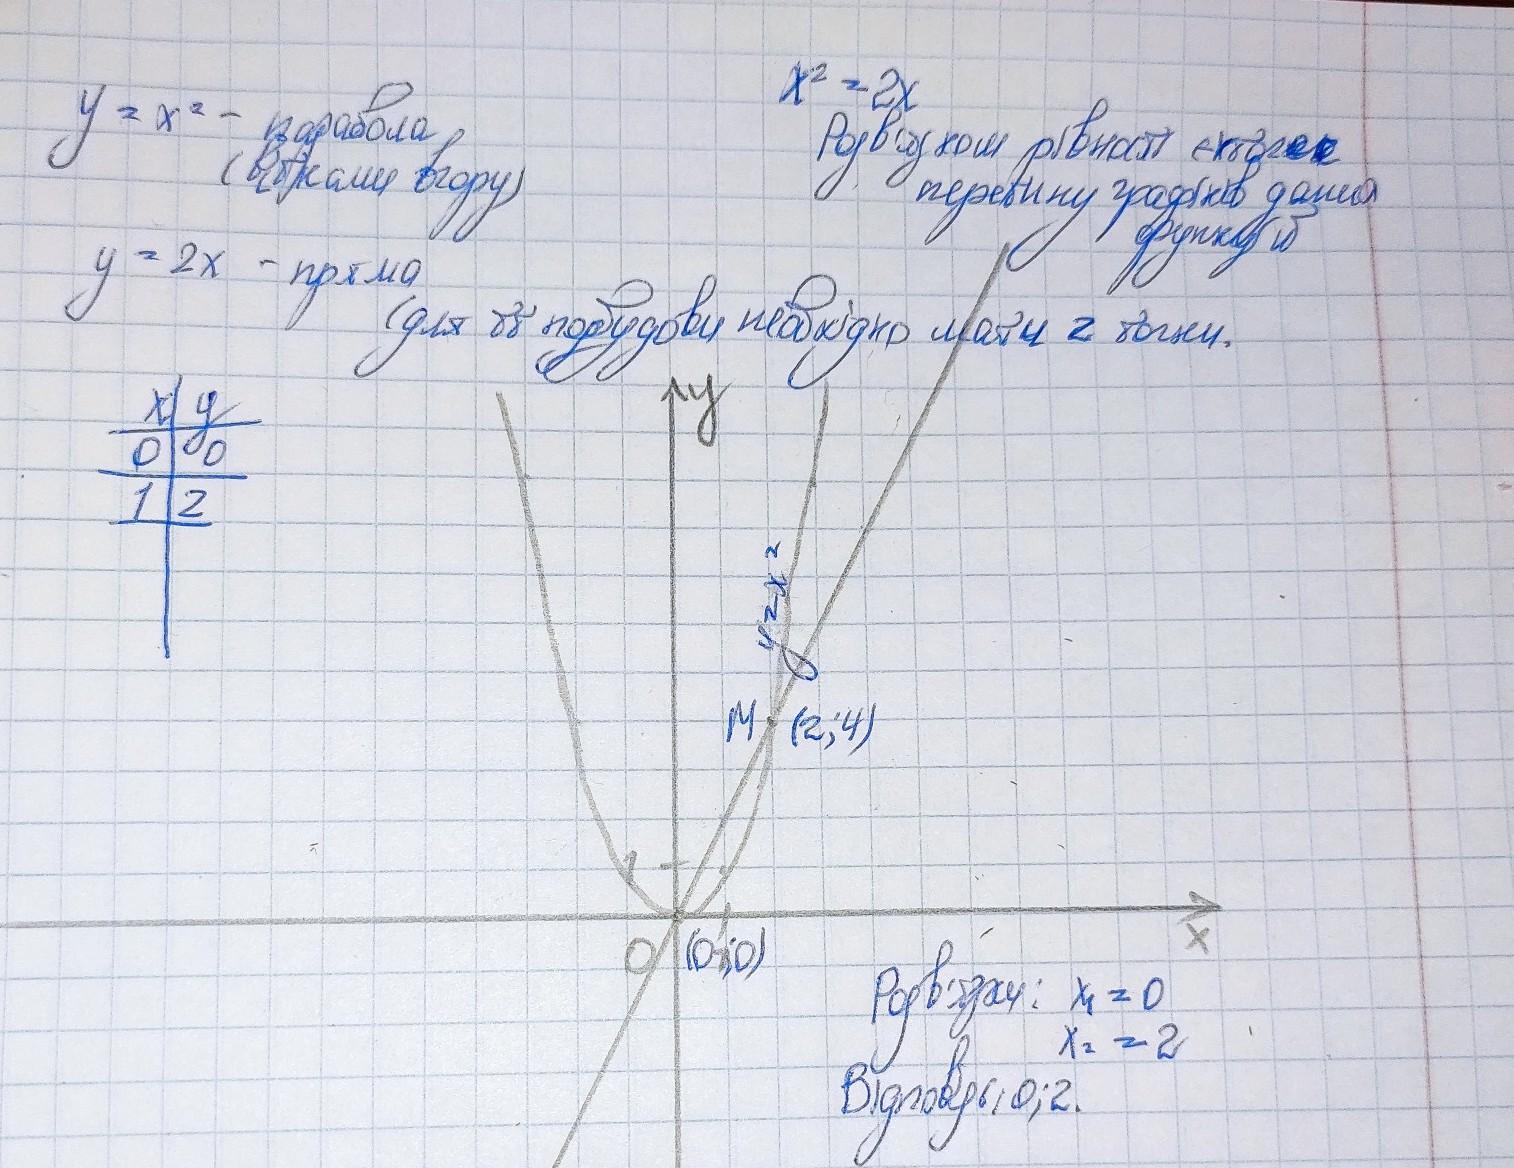 y = x² - парабола
(вітками вгору)
x² = 2x
Розв'язком рівності є точки
перетину графіків даних
функцій
y = 2x - пряма
(для її побудови необхідно мати 2 точки.
x y
0 0
1 2
y
y=x²
M (2;4)
1
1
O (0;0)
x
Розв'язки: x₁ = 0
x₂ = 2
Відповідь: 0; 2.